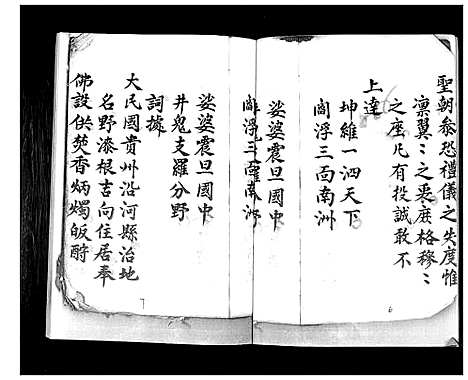 聖朝忝恐禮儀之失度惟
凛翼〻之衷庶格穆〻
之座凡有投誠敢不
上達
坤維一泗天下
閻浮三面南洲
娑婆震旦國中
閻浮三面南洲
6
娑婆震旦國中
井鬼支羅分野
詞據
大民國貴州沿河縣治地
名野漆根吉向住居奉
佛設供焚香炳燭皈酧
7